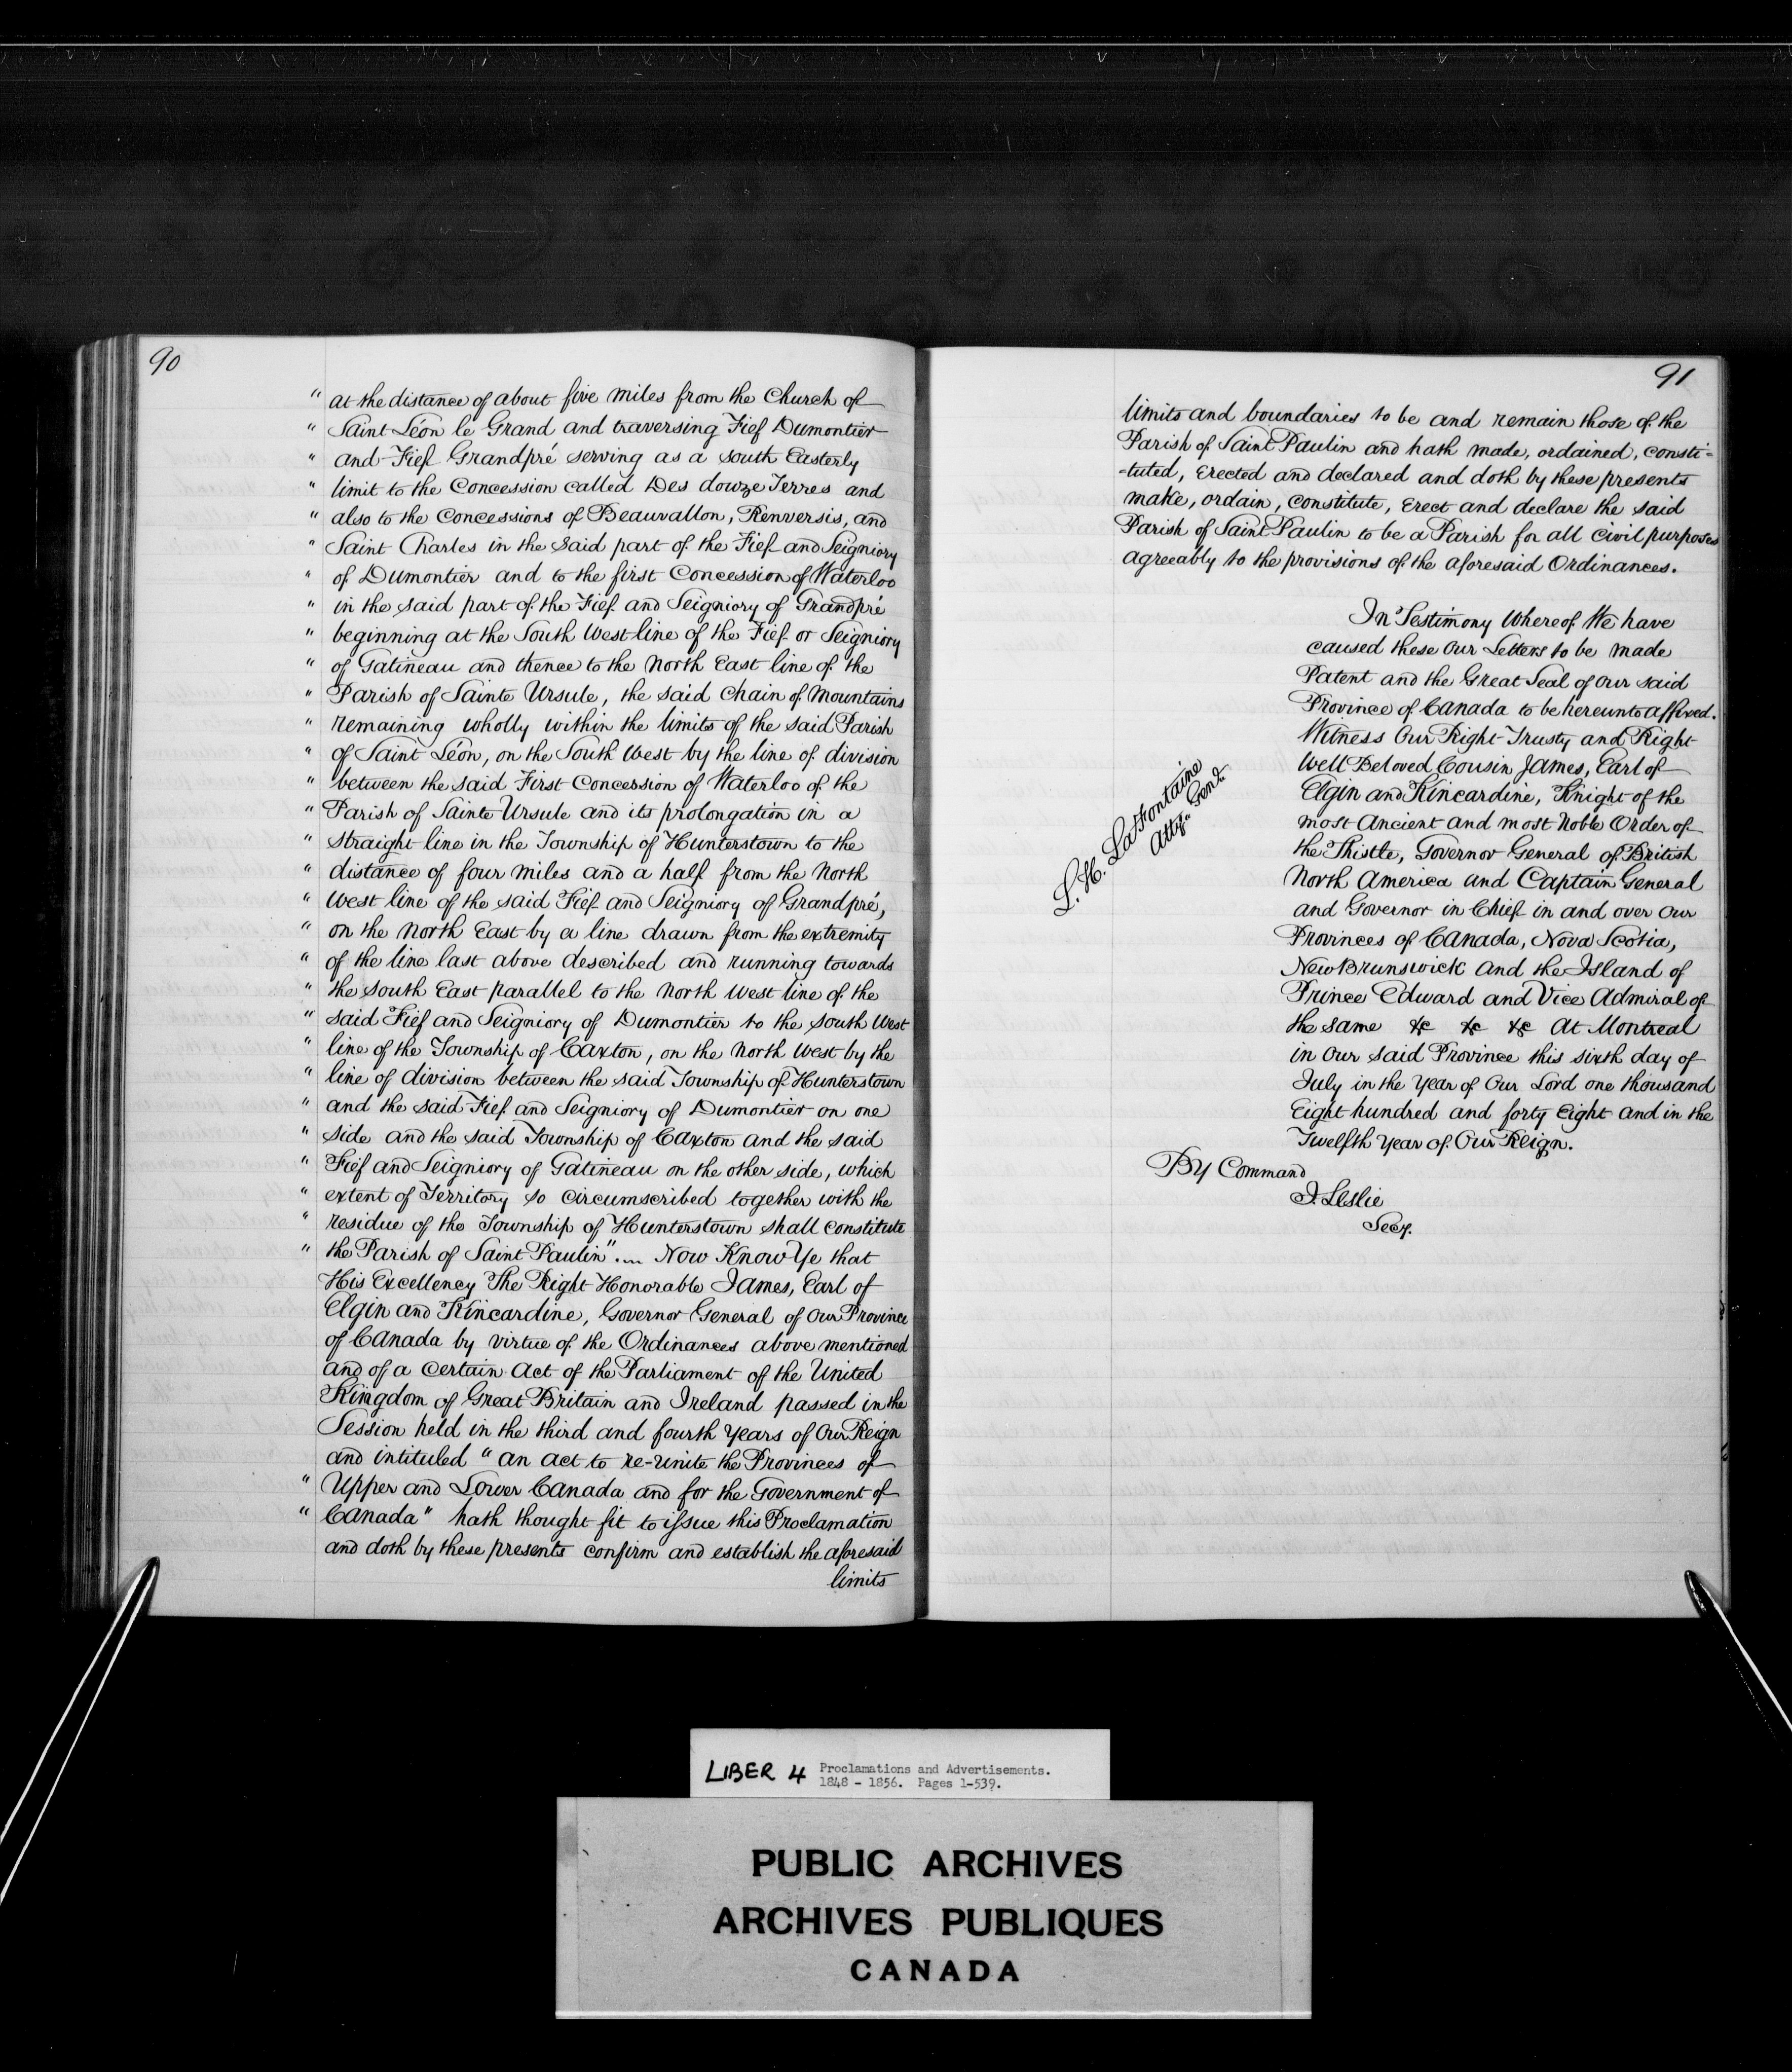 90
" at the distance of about five miles from the Church of
" Saint Léon le Grand and traversing Fief Dumontier
" and Fief Grandpré serving as a south Easterly
" limit to the Concession called Des douze Terres and
" also to the Concessions of Beauvallon, Renversis, and
" Saint Charles in the said part of the Fief and Seigniory
" of Dumontier and to the first Concession of Waterloo
" in the said part of the Fief and Seigniory of Grandpré
" beginning at the South West line of the Fief or Seigniory
" of Gatineau and thence to the North East line of the
" Parish of Sainte Ursule, the said Chain of Mountains
" remaining wholly within the limits of the said Parish
" of Saint Léon, on the South West by the line of division
" between the said First Concession of Waterloo of the
" Parish of Sainte Ursule and its prolongation in a
" straight line in the Township of Hunterstown to the
" distance of four miles and a half from the North
" West line of the said Fief and Seigniory of Grandpré,
" on the North East by a line drawn from the extremity
" of the line last above described and running towards
" the South East parallel to the North West line of the
" said Fief and Seigniory of Dumontier to the South West
" line of the Township of Caxton, on the North West by the
" line of division between the said Township of Hunterstown
" and the said Fief and Seigniory of Dumontier on one
" side and the said Township of Caxton and the said
" Fief and Seigniory of Gatineau on the other side, which
" extent of Territory so circumscribed together with the
" residue of the Township of Hunterstown shall constitute
" the Parish of Saint Paulin".... Now Know Ye that
His Excellency The Right Honorable James, Earl of
Elgin and Kincardine, Governor General of Our Province
of Canada by virtue of the Ordinances above mentioned
and of a certain Act of the Parliament of the United
Kingdom of Great Britain and Ireland passed in the
Session held in the third and fourth Years of Our Reign
and intituled "an act to re-unite the Provinces of
" Upper and Lower Canada and for the Government of
" Canada" hath thought fit to issue this Proclamation
and doth by these presents confirm and establish the aforesaid
limits
91
limits and boundaries to be and remain those of the
Parish of Saint Paulin and hath made, ordained, consti-
-tuted, Erected and declared and doth by these presents
make, ordain, constitute, Erect and declare the said
Parish of Saint Paulin to be a Parish for all Civil purposes
agreeably to the provisions of the aforesaid Ordinances.
In Testimony Whereof We have
caused these Our Letters to be made
Patent and the Great Seal of Our said
Province of Canada to be hereunto affixed.
Witness Our Right Trusty and Right
Well Beloved Cousin James, Earl of
Elgin and Kincardine, Knight of the
most Ancient and most Noble Order of
the Thistle, Governor General of British
North America and Captain General
and Governor in Chief in and over Our
Provinces of Canada, Nova Scotia,
New Brunswick and the Island of
Prince Edward and Vice Admiral of
the same &c &c &c At Montreal
in Our said Province this sixth day of
July in the Year of Our Lord one thousand
Eight hundred and forty Eight and in the
Twelfth Year of Our Reign.
L. H. LaFontaine
Atty. Genl.
By Command
J. Leslie
Secy.
LIBER 4 Proclamations and Advertisements.
1848 - 1856. Pages 1-539.
PUBLIC ARCHIVES
ARCHIVES PUBLIQUES
CANADA